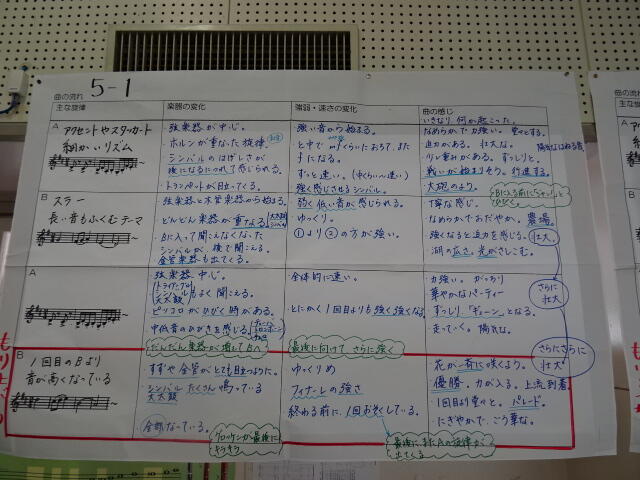 5-1
曲の流れ
主な旋律
楽器の変化
強弱・速さの変化
曲の感じ
A
アクセントやスタッカート
細かいリズム
・弦楽器が中心。
・ホルンが重なった旋律。
・シンバルのはげしさが
後になるにつれて感じられる。
・トランペットが目立ってくる。
強い音から始まる。
ずっと速い。(中くらい〜速い)
強く感じさせるシンバル。
いきなり何か起こった。
なめらかで力強い。堂々とする。
迫力がある。壮大な。
戦いが始まりそう。行進する。
・大砲のよう。
B
スラー
長い音もふくむテーマ
弦楽器と木管楽器から始まる。
どんどん楽器が重なる
・Bに入って聞えなくなった
シンバルが、後で聞こえる。
金管楽器も出てくる。
弱く低い音が感じられる。
ゆっくり。
①より②の方が強い。
丁寧な感じ
なめらかでおだやか。農場。
強くなると迫力を感じる。
壮大。
湖の広さ。光がさしこむ。
A
弦楽器が中心。
トライアングル
シンバル
大太鼓
もよく聞こえる。
ピッコロがひびく時がある。
中低音のひびきを感じる。
だんだん楽器が増してBへ
全体的に速い。
・とにかく1回目よりも強く強くなる。
最後に向けて さらに強く
力強い。がっちり
華やかなパーティー
ずっしり「ギューン」となる。
走っていく。陽気な。
さらに
壮大
さらにさらに
壮大
B
1回目のBより
音が高くなっている
・すずや金管がとても目立つように。
シンバル
大太鼓
たくさん鳴っている
全部なっている。
グロッケンが最後に
キラキラ
ゆっくりめ
フィナーレの強さ
終わる前に、1回おそくしている。
最後に またAの旋律が
出てくる
花が一斉に咲くよう。
優勝。力が入る。上流到着
1回目より堂々と。パレード。
・にぎやかで、ごう華な。